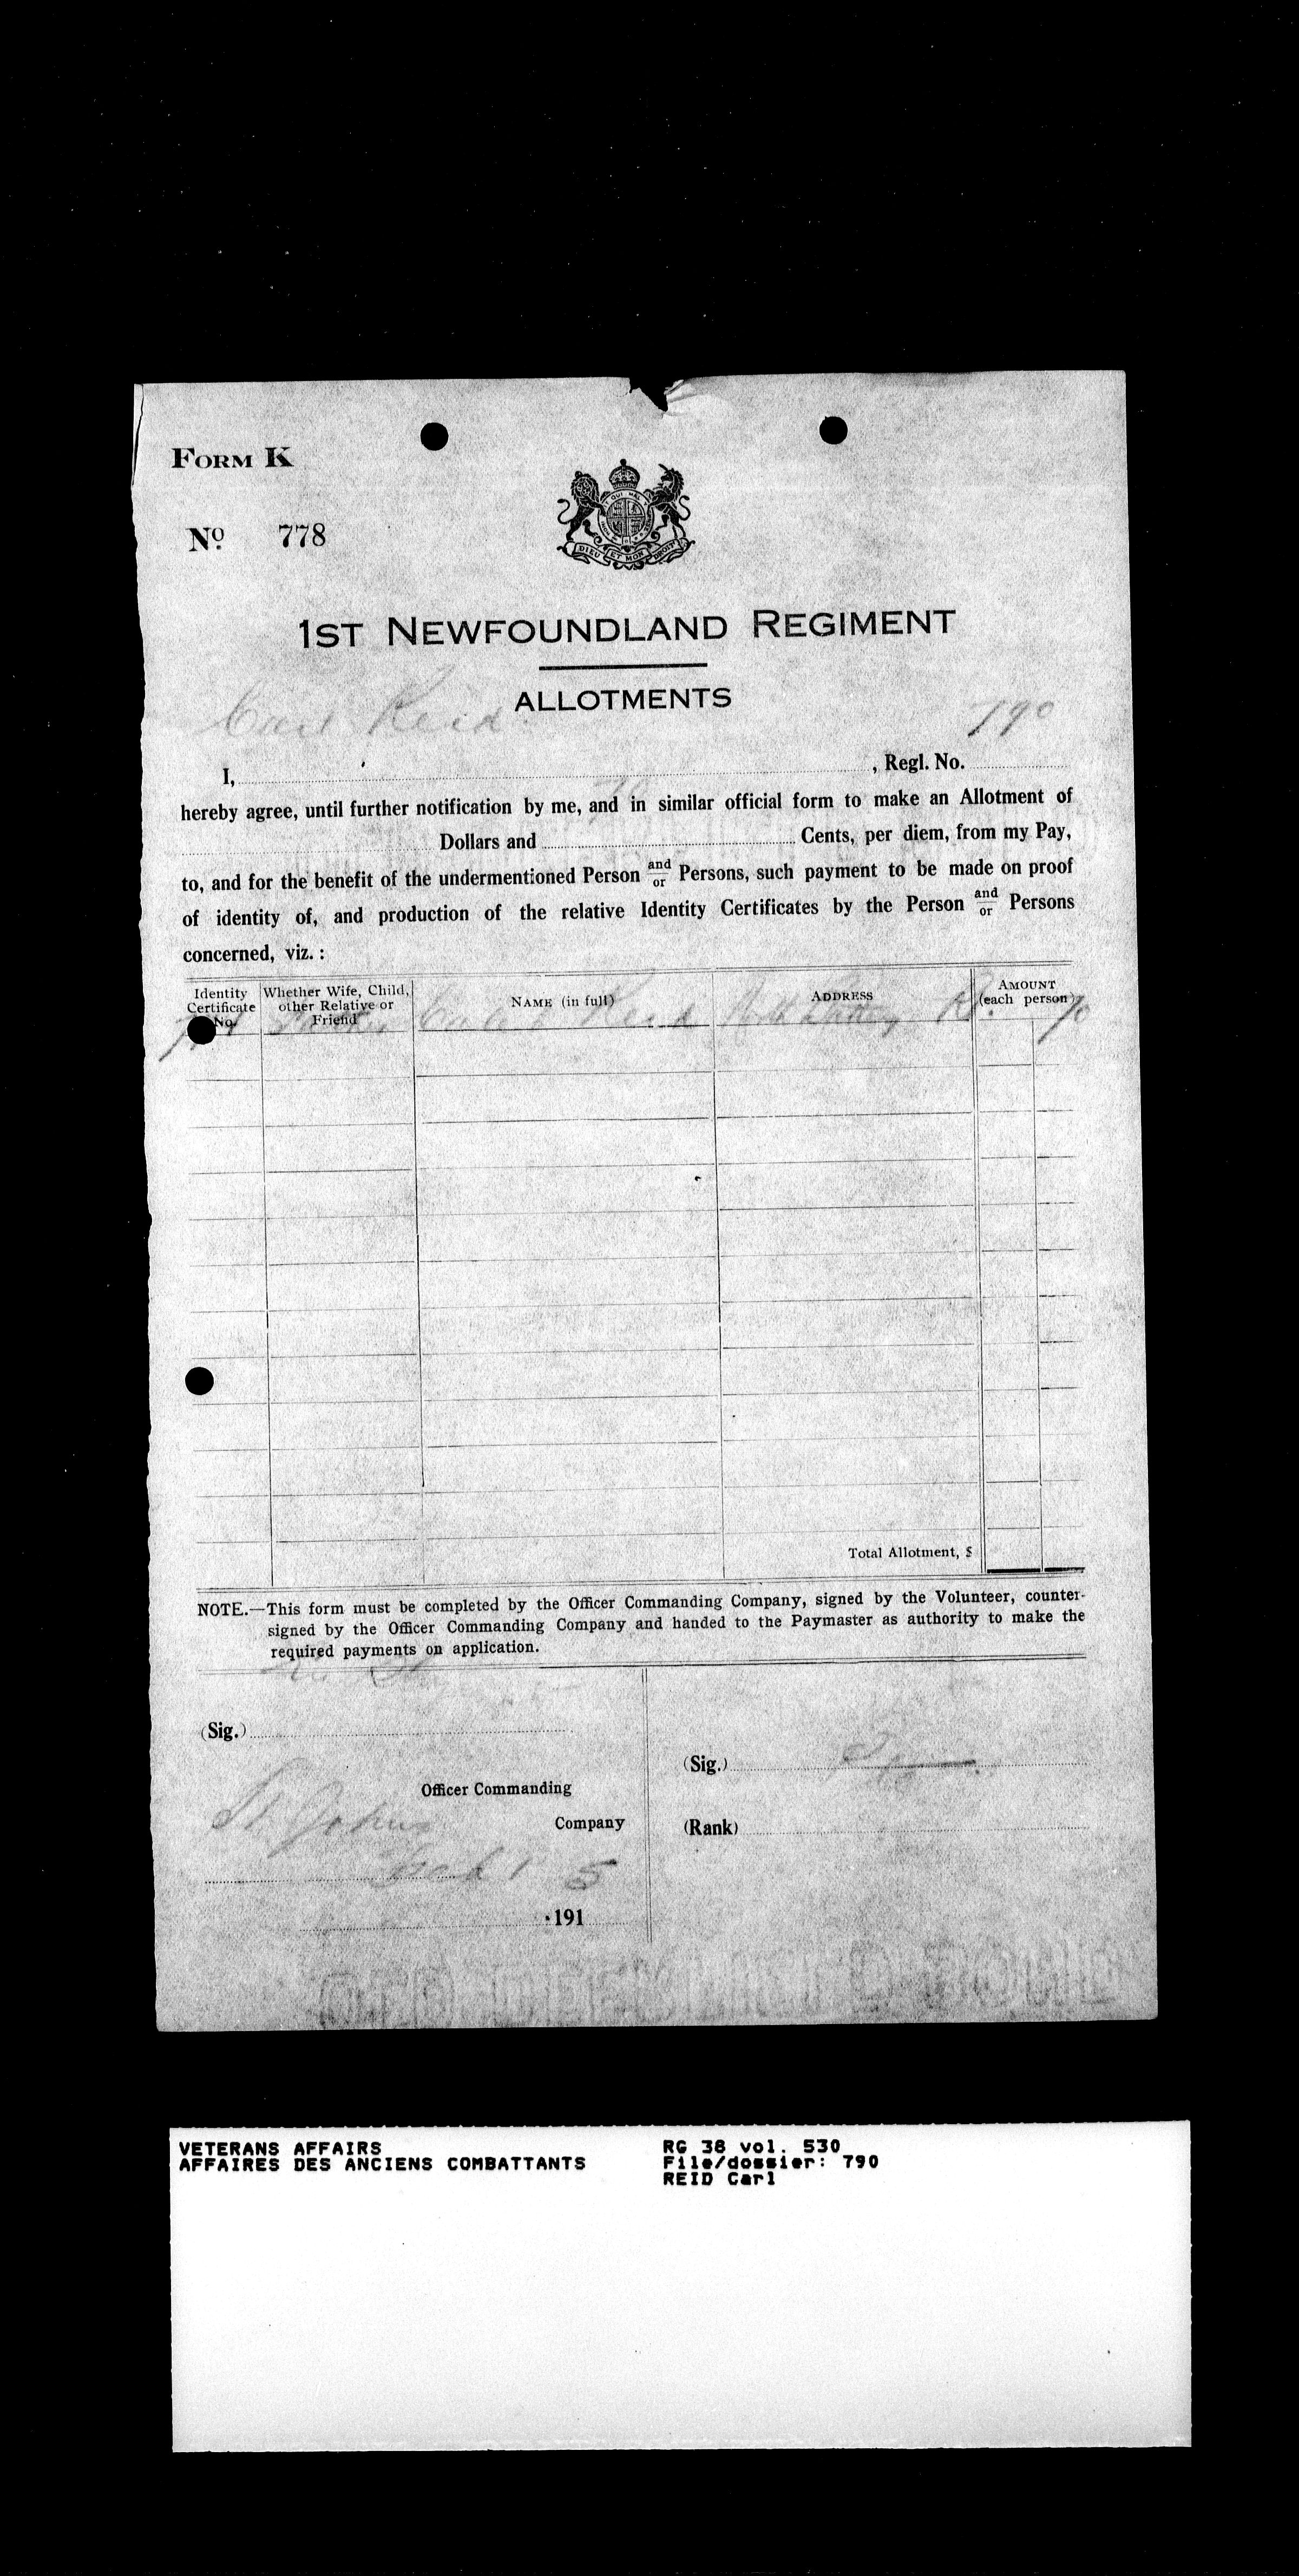 FORM K
No. 778
DIEU ET MON DROIT
1ST NEWFOUNDLAND REGIMENT
ALLOTMENTS
Carl Reid 790
I, , Regl. No.
hereby agree, until further notification by me, and in similar official form to make an Allotment of
Dollars and Cents, per diem, from my Pay,
to, and for the benefit of the undermentioned Person and/or Persons, such payment to be made on proof
of identity of, and production of the relative Identity Certificates by the Person and/or Persons
concerned, viz. :
Identity Certificate No. Whether Wife, Child, other Relative or Friend NAME (in full) ADDRESS AMOUNT (each person)
70
Total Allotment, $
NOTE.—This form must be completed by the Officer Commanding Company, signed by the Volunteer, counter-
signed by the Officer Commanding Company and handed to the Paymaster as authority to make the
required payments on application.
(Sig.)
(Sig.)
Officer Commanding
St. Johns Company
(Rank)
5
191
VETERANS AFFAIRS RG 38 vol. 530
AFFAIRES DES ANCIENS COMBATTANTS File/dossier: 790
REID Carl